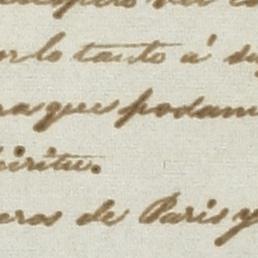 or lo tanto á su
ra que podam
píritu.
eros de Paris y